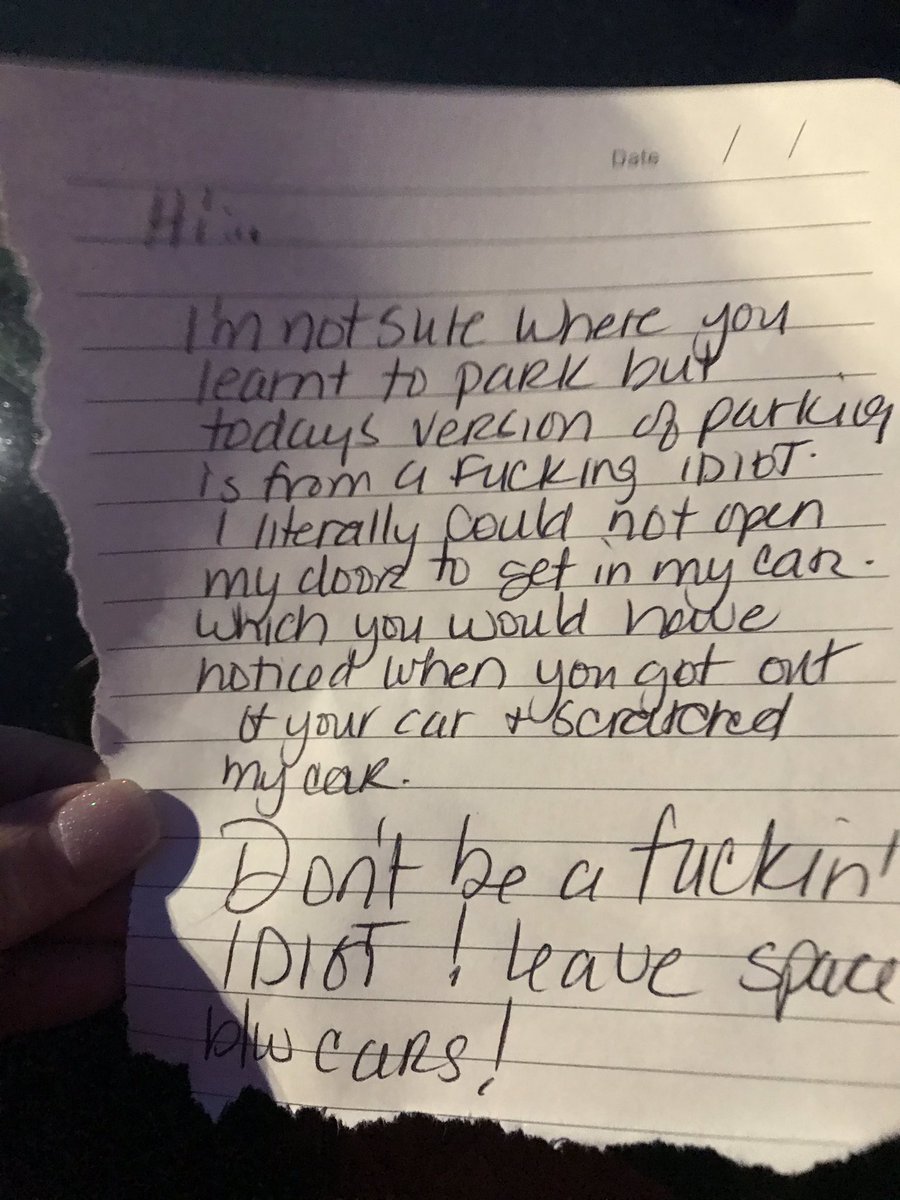 Date / /
Hi...
I'm not sure where you
learnt to park but
todays version of parking
is from a FUCKING IDIOT.
I literally could not open
my door to get in my car.
which you would have
noticed when you got out
of your car + scratched
my car.
Don't be a fuckin'
IDIOT! leave space
b/w cars!